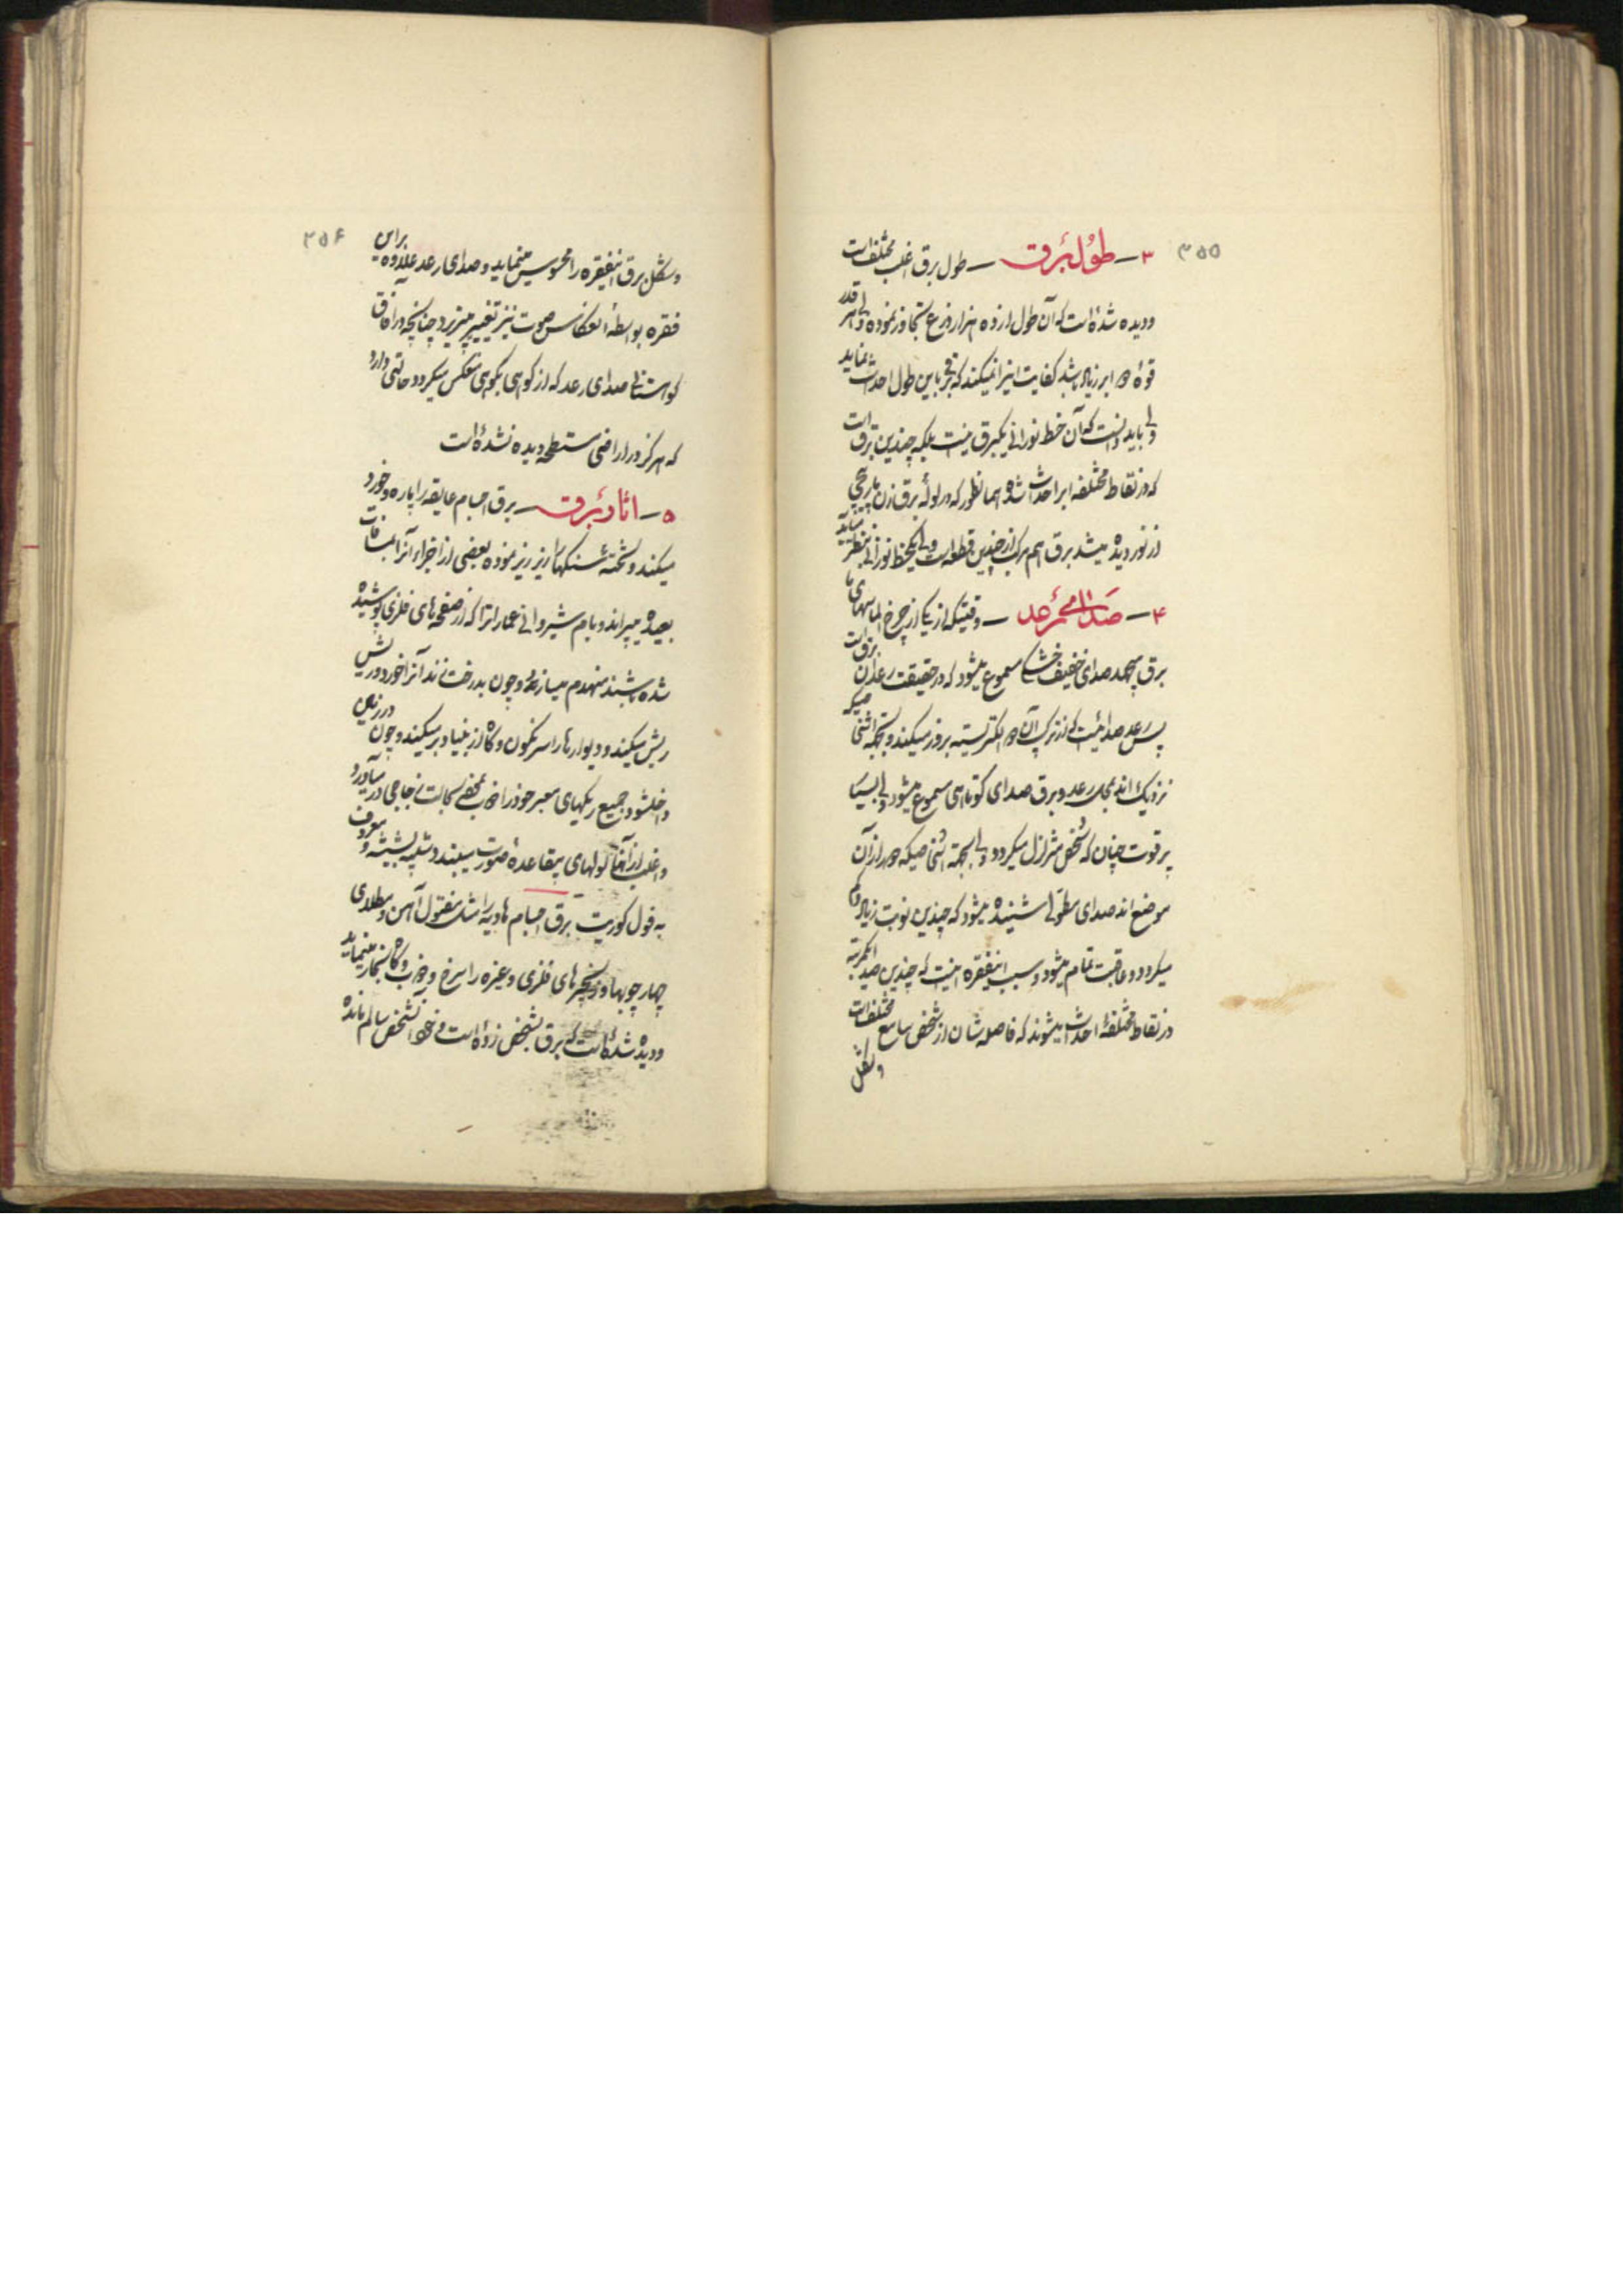 ۳۵۵
۳ـ طول برق ـ طول برق اغلب مختلف است
و دیده شده است که آن طول از ده هزار ذرع تجاوز نموده ولی هر قدر
قوهٔ ابر زیاد باشد کفایت اینرا نمیکند که برقی باین طول احداث نماید
ولی باید دانست که آن خط نورانی یکبرق نیست بلکه چندین برق است
که در نقاط مختلفه ابر احداث شده همانطور که در لولهٔ برق زن مارپیچی
از نور دیده میشد برق هم مرکب از چندین قطعه است ولی یکخط نورانی بنظر میآید
۴ـ صدای رعد ـ وقتیکه از یکی از چرخ الماسهای با
برق بجهد صدای خفیف خشکی مسموع میشود که در حقیقت رعد آن برق است
پس رعد صدائیست که از ترکیب آن دو الکتریسیته بروز میکند و بجهة اشخاصیکه
نزدیک اند بمحل رعد و برق صدای کوتاهی مسموع میشود ولی بسیار
پرقوت چنان که شخص متزلزل میگردد ولی بجهة اشخاصیکه دور از آن
موضع اند صدای مطولی شنیده میشود که چندین نوبت زیاد و کم
میگردد و عاقبت تمام میشود و سبب اینفقره اینست که چندین صدا یکمرتبه
در نقاط مختلفه احداث میشوند که فاصله شان از شخص سامع مختلف است
و شکل
۳۵۶
و شکل برق اینفقره را محسوس مینماید و صدای رعد علاوه بر این
فقره بواسطهٔ انعکاس صوت نیز تغییر میپذیرد چنانچه در آفاق
کوهستانی صدای رعد که از کوهی بکوهی منعکس میگردد حالتی دارد
که هرگز در اراضی مسطحه دیده نشده است
۵ـ اثار برق ـ برق اجسام عایقه را پاره و خورد
میکند و تخته سنگها را ریز ریز نموده بعضی از اجزاء آنرا بمسافت
بعیده میپراند و بام شیروانی عماراترا که از صفحه های فلزی پوشیده
شده باشند منهدم میسازد و چون بدرخت زند آنرا خورد و ریش
ریش میکند و دیوارها را سرنگون و گاه از بنیاد بر میکند و چون در زمین
داخل شود جمیع ریگهای معبر خود را ذوب بعضی بحالت زجاجی در میآورد
و اغلب از آنها لولهای بیقاعده صورت میبندد شبیه بشیشه و معروف
به فول گوریت برق اجسام هادیه را مثل مفتول آهن و مطلای
چهار چوبها و زنجیرهای فلزی و غیره را سرخ و ذوب و گاه بخار مینماید
و دیده شده است که برق بشخص زده است خود آنشخص سالم مانده